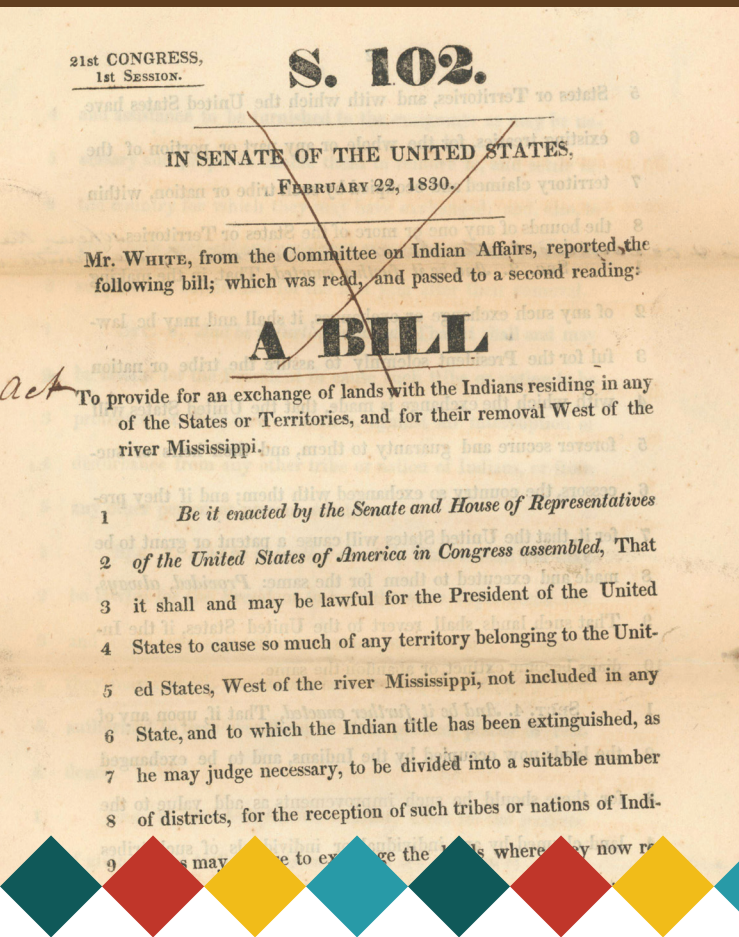 21st CONGRESS,
1st SESSION.
S. 102.
IN SENATE OF THE UNITED STATES,
FEBRUARY 22, 1830.
Mr. WHITE, from the Committee on Indian Affairs, reported the
following bill; which was read, and passed to a second reading:
A BILL
act
To provide for an exchange of lands with the Indians residing in any
of the States or Territories, and for their removal West of the
river Mississippi.
1 Be it enacted by the Senate and House of Representatives
2 of the United States of America in Congress assembled, That
3 it shall and may be lawful for the President of the United
4 States to cause so much of any territory belonging to the Unit-
5 ed States, West of the river Mississippi, not included in any
6 State, and to which the Indian title has been extinguished, as
7 he may judge necessary, to be divided into a suitable number
8 of districts, for the reception of such tribes or nations of Indi-
9 may to the where now